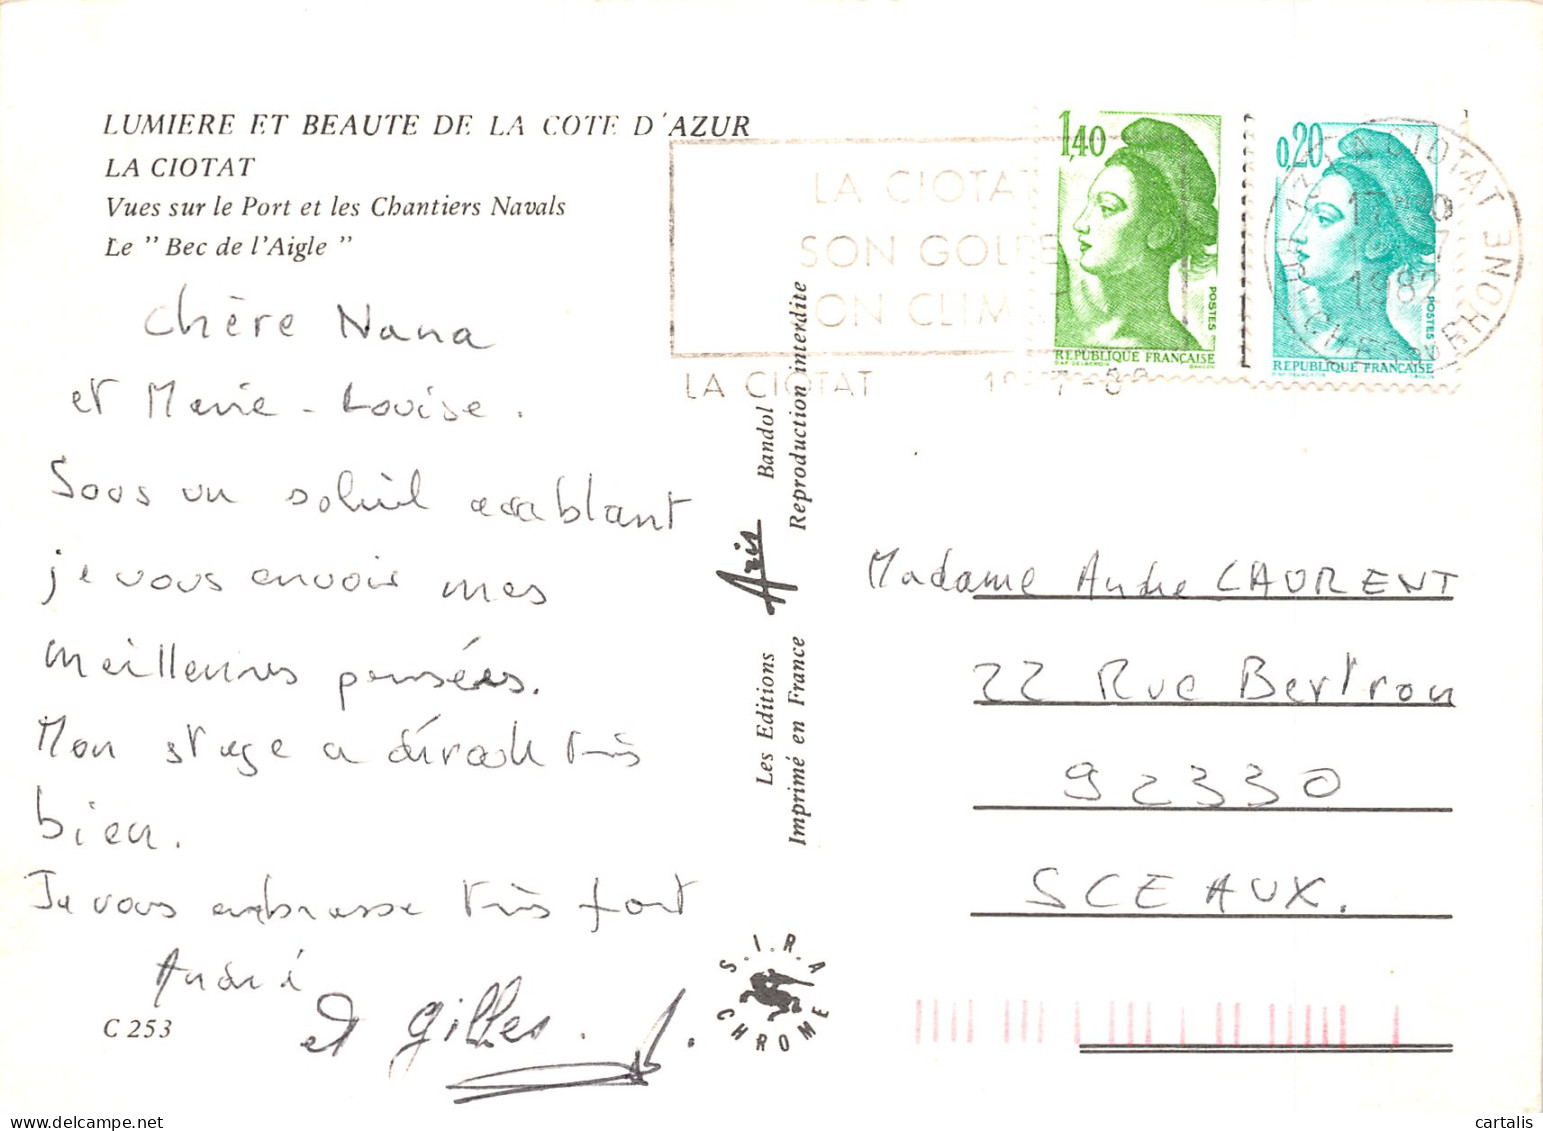 LUMIERE ET BEAUTE DE LA COTE D'AZUR
LA CIOTAT
Vues sur le Port et les Chantiers Navals
Le " Bec de l'Aigle "
Chère Nana
et Marie-Louise.
Sous un soleil accablant
je vous envoie mes
meilleures pensées.
Mon stage a déroulé très
bien.
Je vous embrasse très fort
André
et Gilles.
C 253
Les Editions Aris Bandol
Imprimé en France Reproduction interdite
S.I.R.A
CHROME
LA CIOTAT
SON GOLFE
SON CLIM
LA CIOTAT
1,40
POSTES
REPUBLIQUE FRANÇAISE
0,20
POSTES
REPUBLIQUE FRANÇAISE
LA CIOTAT
1982
B. DU RHONE
Madame Andre LAURENT
22 Rue Bertron
92330
SCEAUX.
cartalis